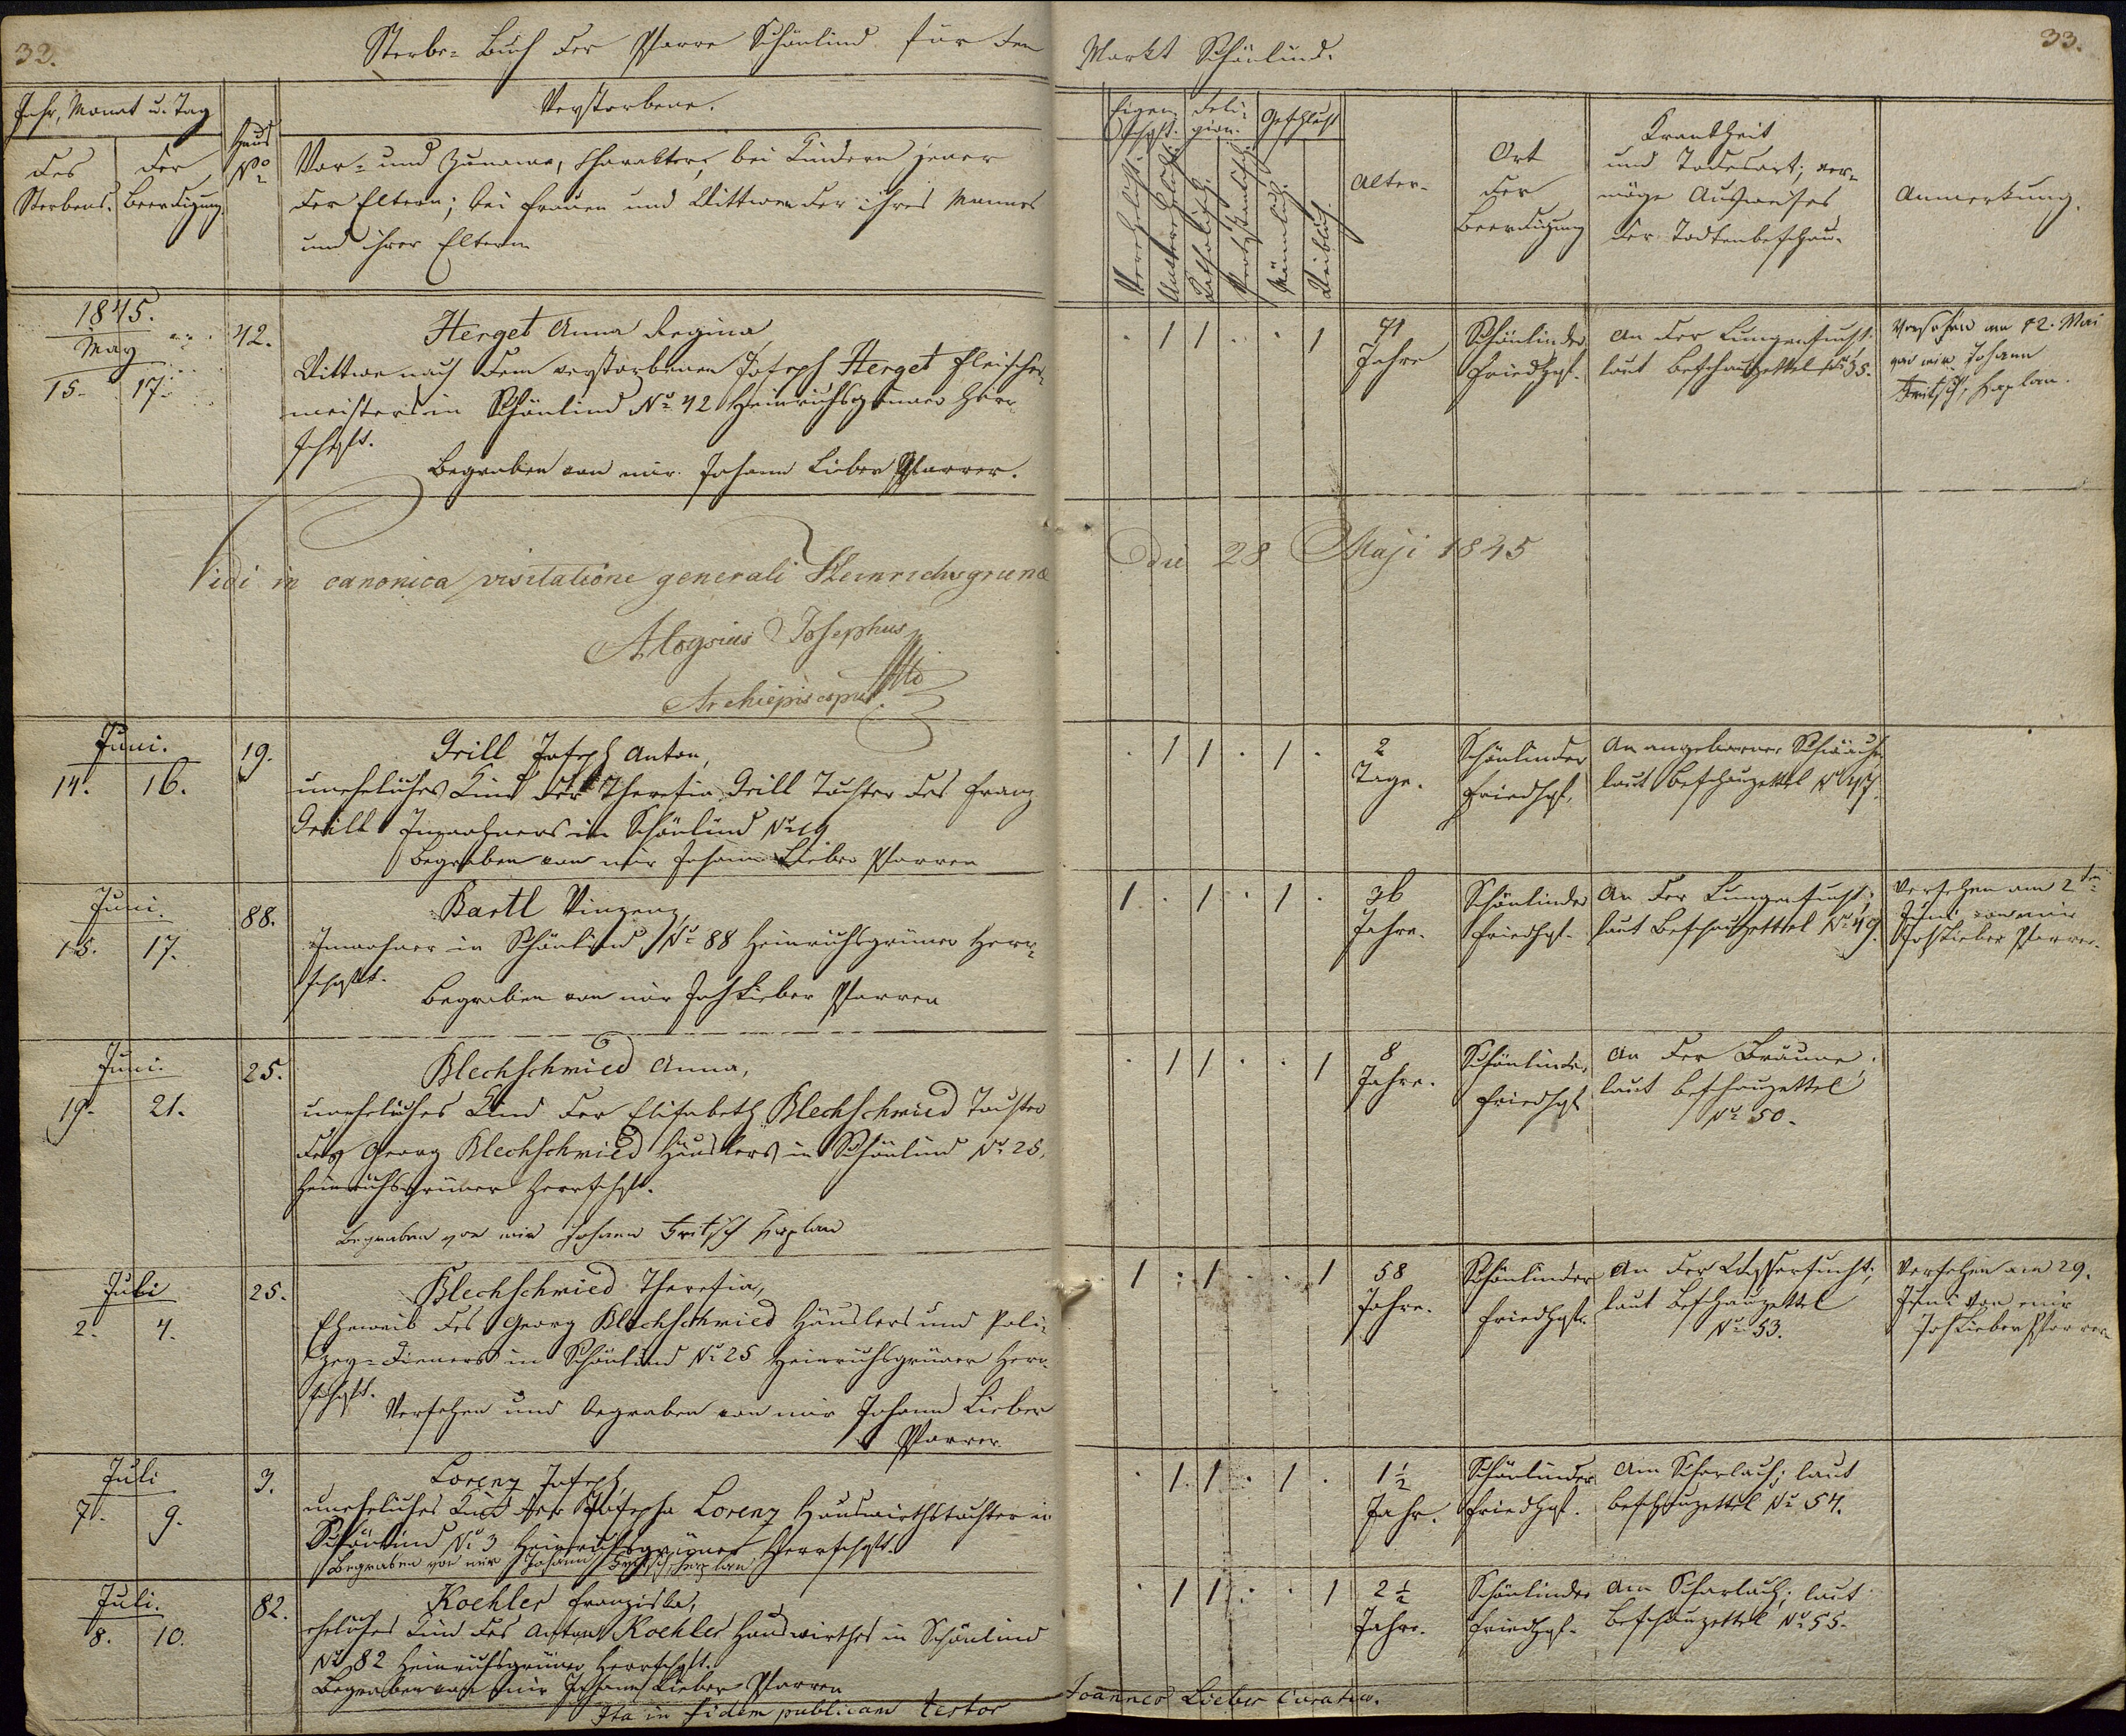 32.
Sterbe- Buch der Pfarre Schönlind für den
Markt Schönlind.
33.
Jahr, Monat u. Tag
des Sterbens.
der Beerdigung.
Haus No
Verstorbene.
Vor- und Zuname, Charakter, bei Kindern jener
der Eltern; bei Frauen und Wittwen der ihres Mannes
und ihrer Eltern
Religion.
Geschlecht
Katholisch.
Männlich.
Weiblich.
Alter.
Ort
der
Beerdigung
Krankheit
und Todesart; ver-
möge Ausweises
der Todtenbeschau.
Anmerkung.
1845.
May
15. 17.
42.
Herget Anna Regina
Wittwe nach dem verstorbenen Joseph Herget Fleischer-
meisters in Schönlind No 42 Heinrichsgrüner Herr-
schaft.
Begraben von mir Johann Lieber Pfarrer.
. 1 1 . . 1
71
Jahre
Schönlinder
Friedhof.
An der Lungensucht
laut Beschauzettel No 35.
Versehen am 12. Mai
von mir Johann
Fritsch, Kaplan.
Vidi in canonica visitatione generali Heinrichsgrunae
die 28 Maji 1845
Aloysius Josephus
Archiepiscopus
Juni.
14. 16.
19.
Grill Joseph Anton,
uneheliches Kind der Theresia Grill Tochter des Franz
Grill Inwohners in Schönlind No 19
Begraben von mir Johann Lieber Pfarrer
. 1 1 . 1 .
2
Tage.
Schönlinder
Friedhof.
An angeborner Schwäche
laut Beschauzettel No 47.
Juni.
15. 17.
88.
Bartl Vinzenz,
Inwohner in Schönlind No 88 Heinrichsgrüner Herr-
schaft.
Begraben von mir Joh Lieber Pfarrer
1 . 1 . 1 .
36
Jahre.
Schönlinder
Friedhof.
An der Lungensucht;
laut Beschauzettel No 49.
Versehen am 2ten
Juni von mir
Joh Lieber Pfarrer.
Juni.
19. 21.
25.
Blechschmied Anna,
uneheliches Kind der Elisabeth Blechschmied Tochter
des Georg Blechschmied Häuslers in Schönlind No 25,
Heinrichsgrüner Herrschaft.
Begraben von mir Johann Fritsch Kaplan
. 1 1 . . 1
8
Jahre.
Schönlinder
Friedhof
An der Bräune;
laut Beschauzettel
No 50.
Juli
2. 4.
25.
Blechschmied Theresia,
Eheweib des Georg Blechschmied Häuslers und Poli-
zey-Dieners in Schönlind No 25 Heinrichsgrüner Herr-
schaft.
Versehen und begraben von mir Johann Lieber
Pfarrer.
1 . 1 . . 1
58
Jahre.
Schönlinder
Friedhof.
An der Wassersucht;
laut Beschauzettel
No 53.
Versehen am 29.
Juni von mir
Joh Lieber Pfarrer
Juli
7. 9.
3.
Lorenz Joseph,
uneheliches Kind der Josepha Lorenz Hauswirthstochter in
Schönlind No 3 Heinrichsgrüner Herrschaft.
Begraben von mir Johann Fritsch, Kaplan
. 1 1 . 1 .
1 1/2
Jahr.
Schönlinder
Friedhof.
Am Scharlach; laut
Beschauzettel No 54.
Juli.
8. 10.
82.
Koehler Franziska,
eheliches Kind des Anton Koehler Hauswirthes in Schönlind
No 82 Heinrichsgrüner Herrschaft.
Begraben von mir Johann Lieber Pfarrer
. 1 1 . . 1
2 1/2
Jahre.
Schönlinder
Friedhof.
Am Scharlach; laut
Beschauzettel No 55.
Ita in fidem publicam testor
Joannes Lieber Curatus.